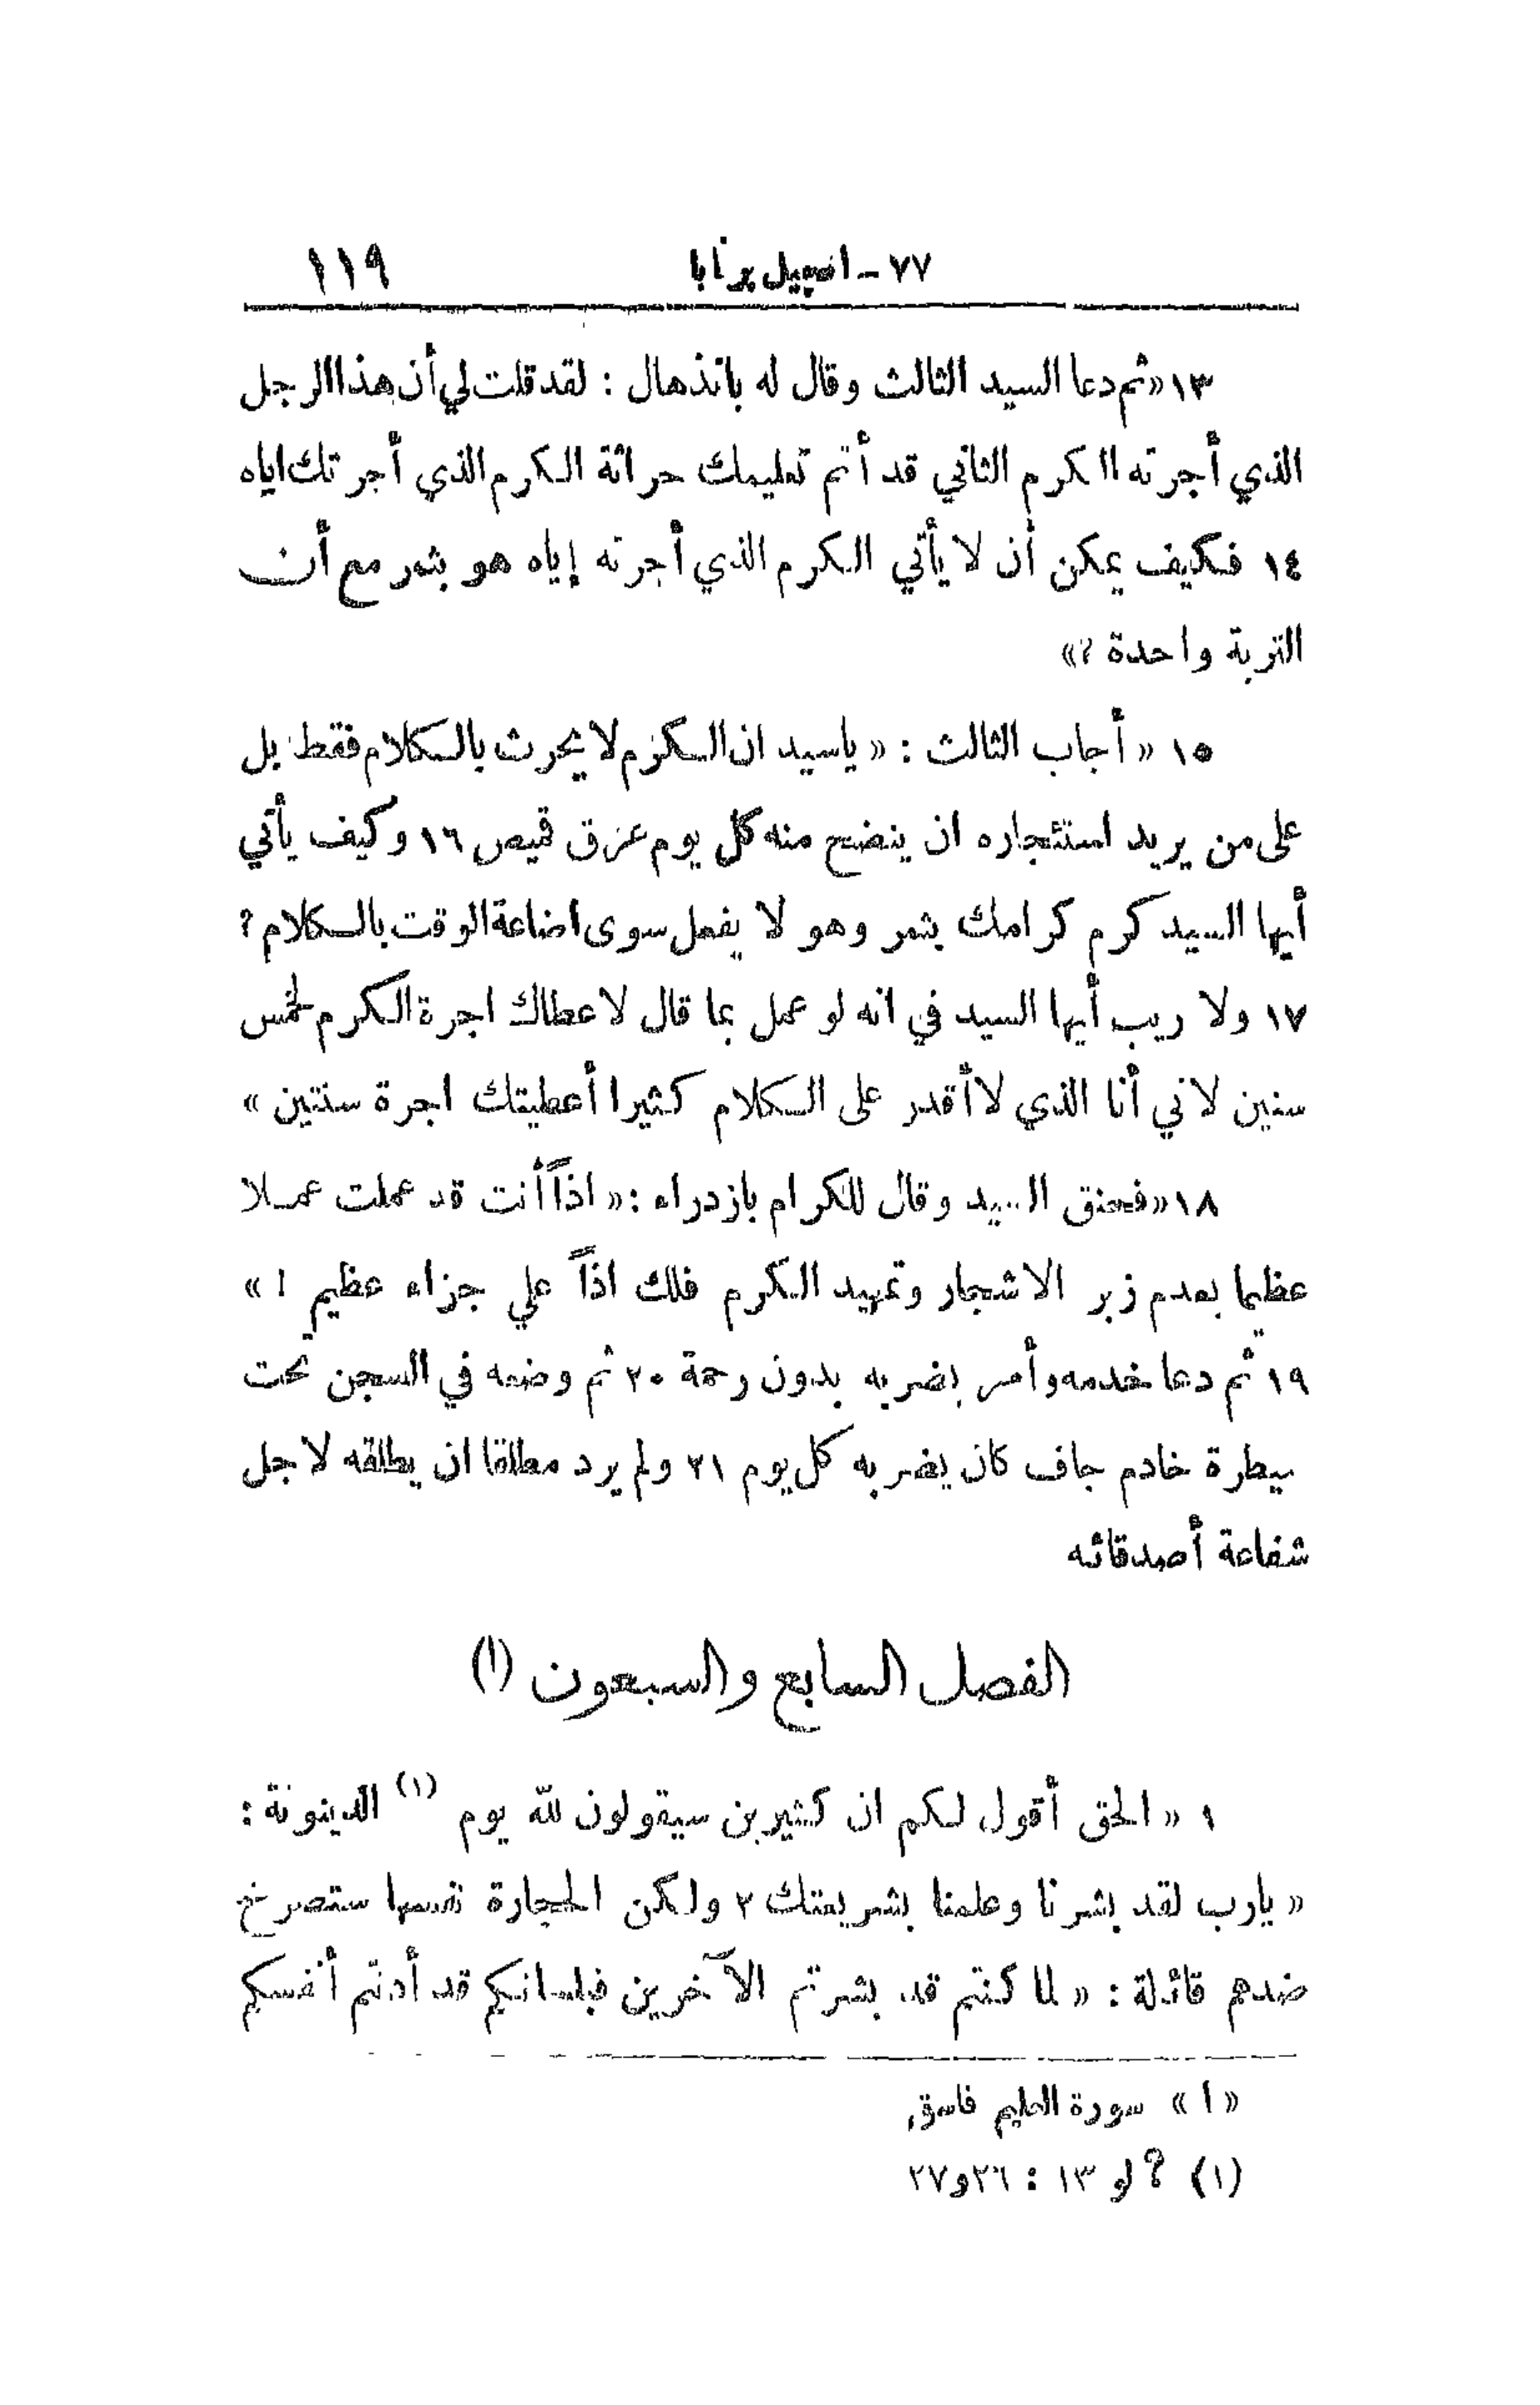 ٧٧ - انجيل برنابا ١١٩
١٣ «ثم دعا السيد الثالث وقال له بانذهال : لقد قلت لي أن هذا الرجل
الذي أجرته الكرم الثاني قد أتم تعليمك حراثة الكرم الذي أجرتك اياه
١٤ فكيف يمكن أن لا يأتي الكرم الذي أجرته إياه هو بثمر مع أن
التربة واحدة ؟»
١٥ « أجاب الثالث : « ياسيد ان الكرم لا يحرث بالكلام فقط بل
على من يريد استئجاره ان ينضح منه كل يوم عرق قميص ١٦ وكيف يأتي
أيها السيد كرم كرامك بثمر وهو لا يفعل سوى اضاعة الوقت بالكلام ؟
١٧ ولا ريب أيها السيد في انه لو عمل بما قال لاعطاك اجرة الكرم لخمس
سنين لاني أنا الذي لا أقدر على الكلام كثيرا أعطيتك اجرة سنتين »
١٨ «فحنق السيد وقال للكرام بازدراء : « اذاً أنت قد عملت عملا
عظيما بعدم زبر الاشجار وتمهيد الكرم فلك اذاً علي جزاء عظيم ! »
١٩ ثم دعا خدمه وأمر بضربه بدون رحمة ٢٠ ثم وضعه في السجن تحت
سيطرة خادم جاف كان يضربه كل يوم ٢١ ولم يرد مطلقا ان يطلقه لاجل
شفاعة أصدقائه
الفصل السابع والسبعون (ا)
١ « الحق أقول لكم ان كثيرين سيقولون لله يوم (١) الدينونة :
« يارب لقد بشرنا وعلمنا بشريعتك ٢ ولكن الحجارة نفسها ستصرخ
ضدهم قائلة : « لما كنتم قد بشرتم الآخرين فبلسانكم قد أدنتم أنفسكم
« ا » سورة العليم فاسق
(١) ؟ لو ١٣ : ٢٦ و٢٧